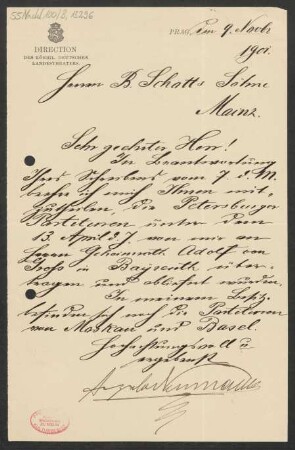 55 Nachl. 100/B, 16296
DIRECTION
DES KÖNIGL. DEUTSCHEN
LANDESTHEATERS.
PRAG, am 9. Novbr
1901.
Herrn B. Schott's Söhne
Mainz.
Sehr geehrter Herr!
In Beantwortung
Ihres Schreibens vom 7 d. M.
beehre ich mich Ihnen mit-
zutheilen, die Petersburger
Partituren unter dem
13. April d. J. von mir an
Herrn Geheimrath Adolf von
Gross in Bayreuth über-
tragen und abliefert wurden.
In meinem Besitz
befinden sich nur die Partituren
von Moskau und Basel.
Hochachtungsvoll u
ergebenst
Angelo Neumann